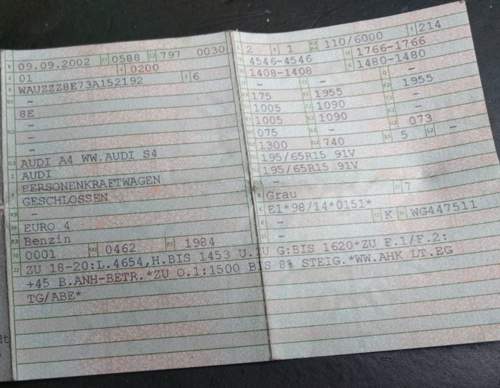 09.09.2002 0588 797 0030
01 0200
WAUZZZ8E73A152192 6
-
8E
-
-
-
AUDI A4 WW.AUDI S4
AUDI
PERSONENKRAFTWAGEN
GESCHLOSSEN
-
EURO 4
Benzin
0001 0462 1984
2 1 110/6000 214
4546-4546 1766-1766
1408-1408 1480-1480
- -
175 1955 1955
1005 1090 -
1005 1090 -
075 - 073
1300 740 5 -
195/65R15 91V
195/65R15 91V
-
-
Grau 7
E1*98/14*0151*
K WG447511
ZU 18-20:L.4654,H.BIS 1453 U. G:BIS 1620*ZU F.1/F.2:
+45 B.ANH-BETR.*ZU O.1:1500 BIS 8% STEIG.*WW.AHK LT.EG
TG/ABE*